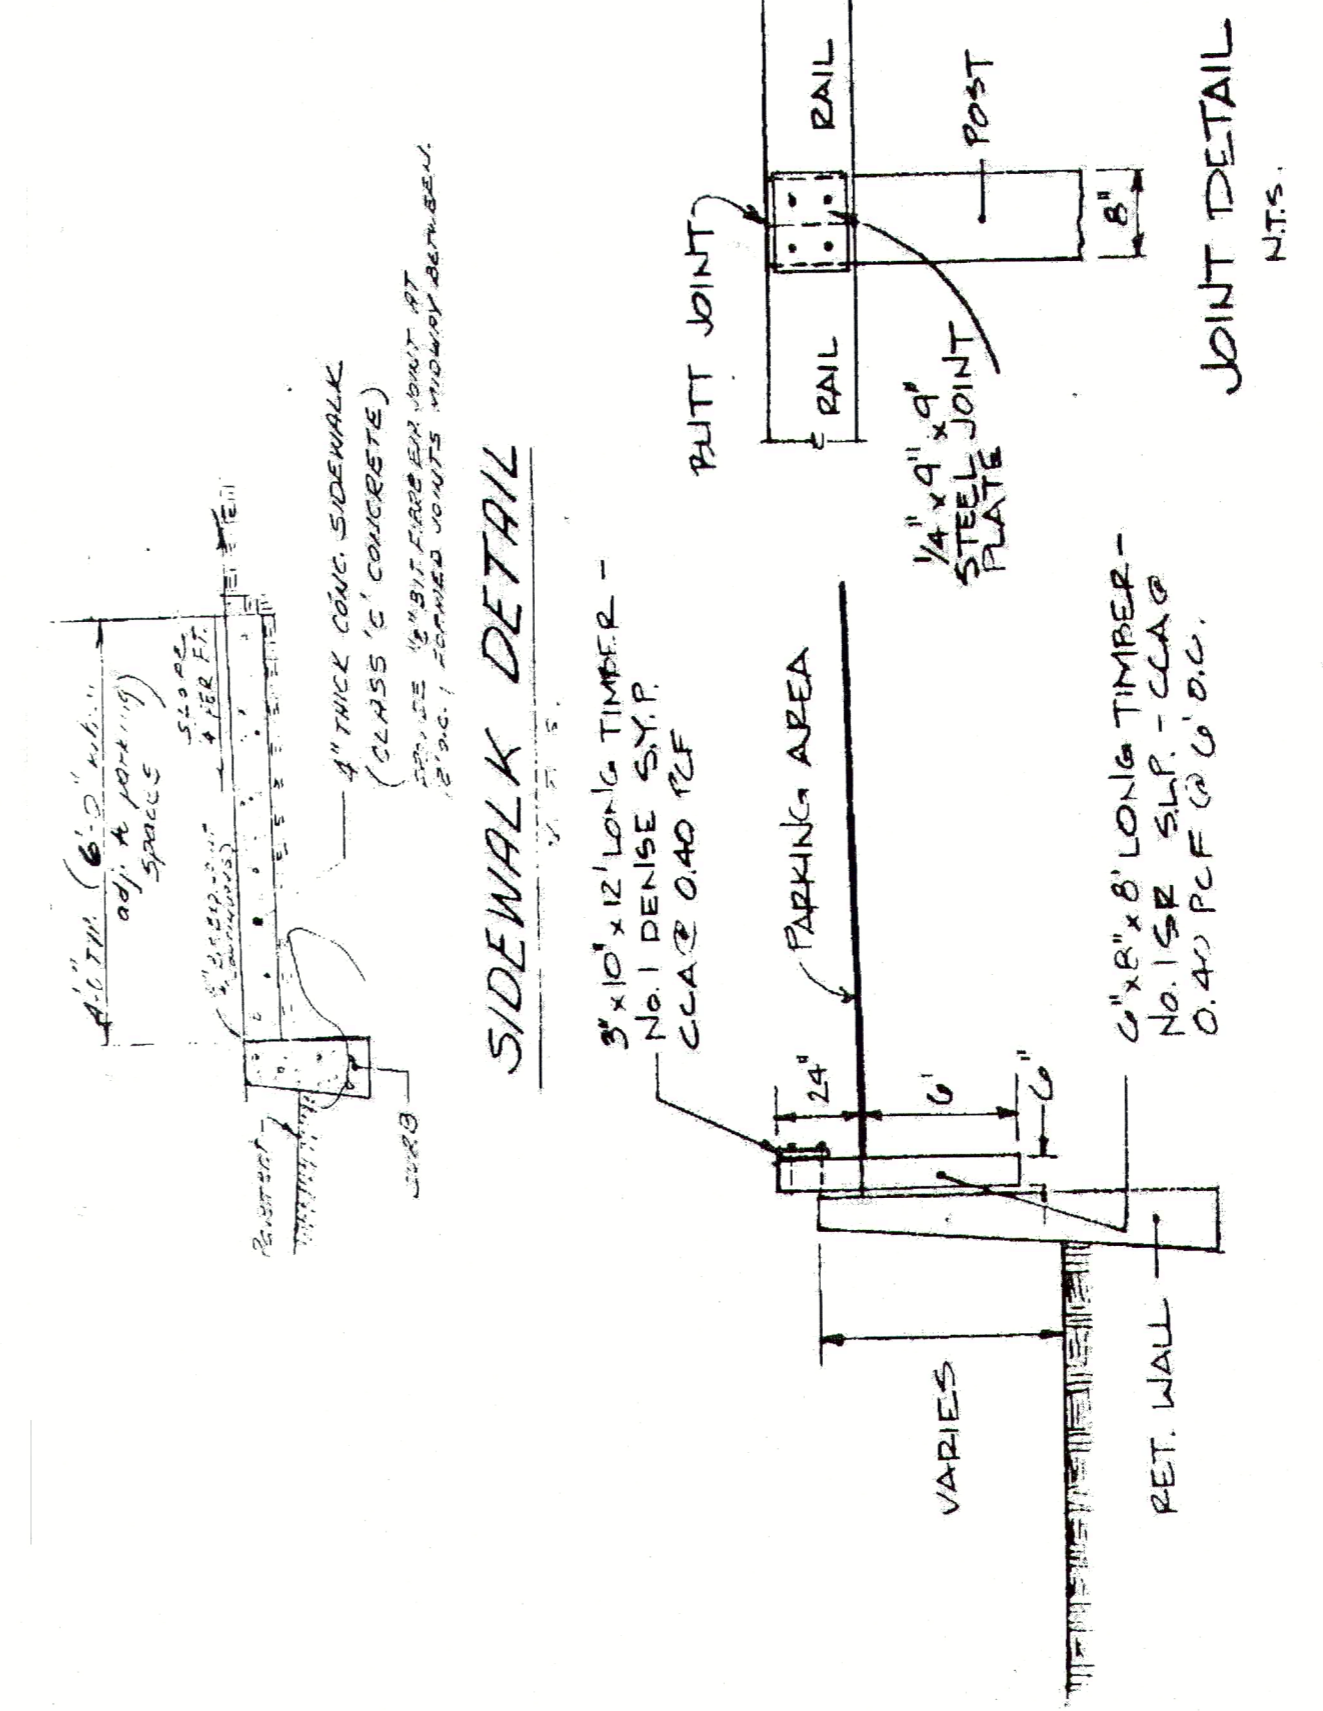 4'-0" TYP. (6'-0"
adj. to parking)
spaces
SLOPE
PER FT.
PAVEMENT
CURB
4" THICK CONC. SIDEWALK
(CLASS 'C' CONCRETE)
1/2" BIT. FIBRE EXP. JOINT AT
O.C.; FORMED JOINTS MIDWAY BETWEEN.
SIDEWALK DETAIL
3" x 10" x 12' LONG TIMBER -
No. 1 DENSE S.Y.P.
CCA @ 0.40 PCF
24"
6'
6"
PARKING AREA
VARIES
RET. WALL
6" x 8" x 8' LONG TIMBER -
No. 1 SR S.L.P. - CCA @
0.40 PCF @ 6' O.C.
BUTT JOINT
RAIL
RAIL
POST
8"
1/4" x 9" x 9"
STEEL JOINT
PLATE
JOINT DETAIL
N.T.S.